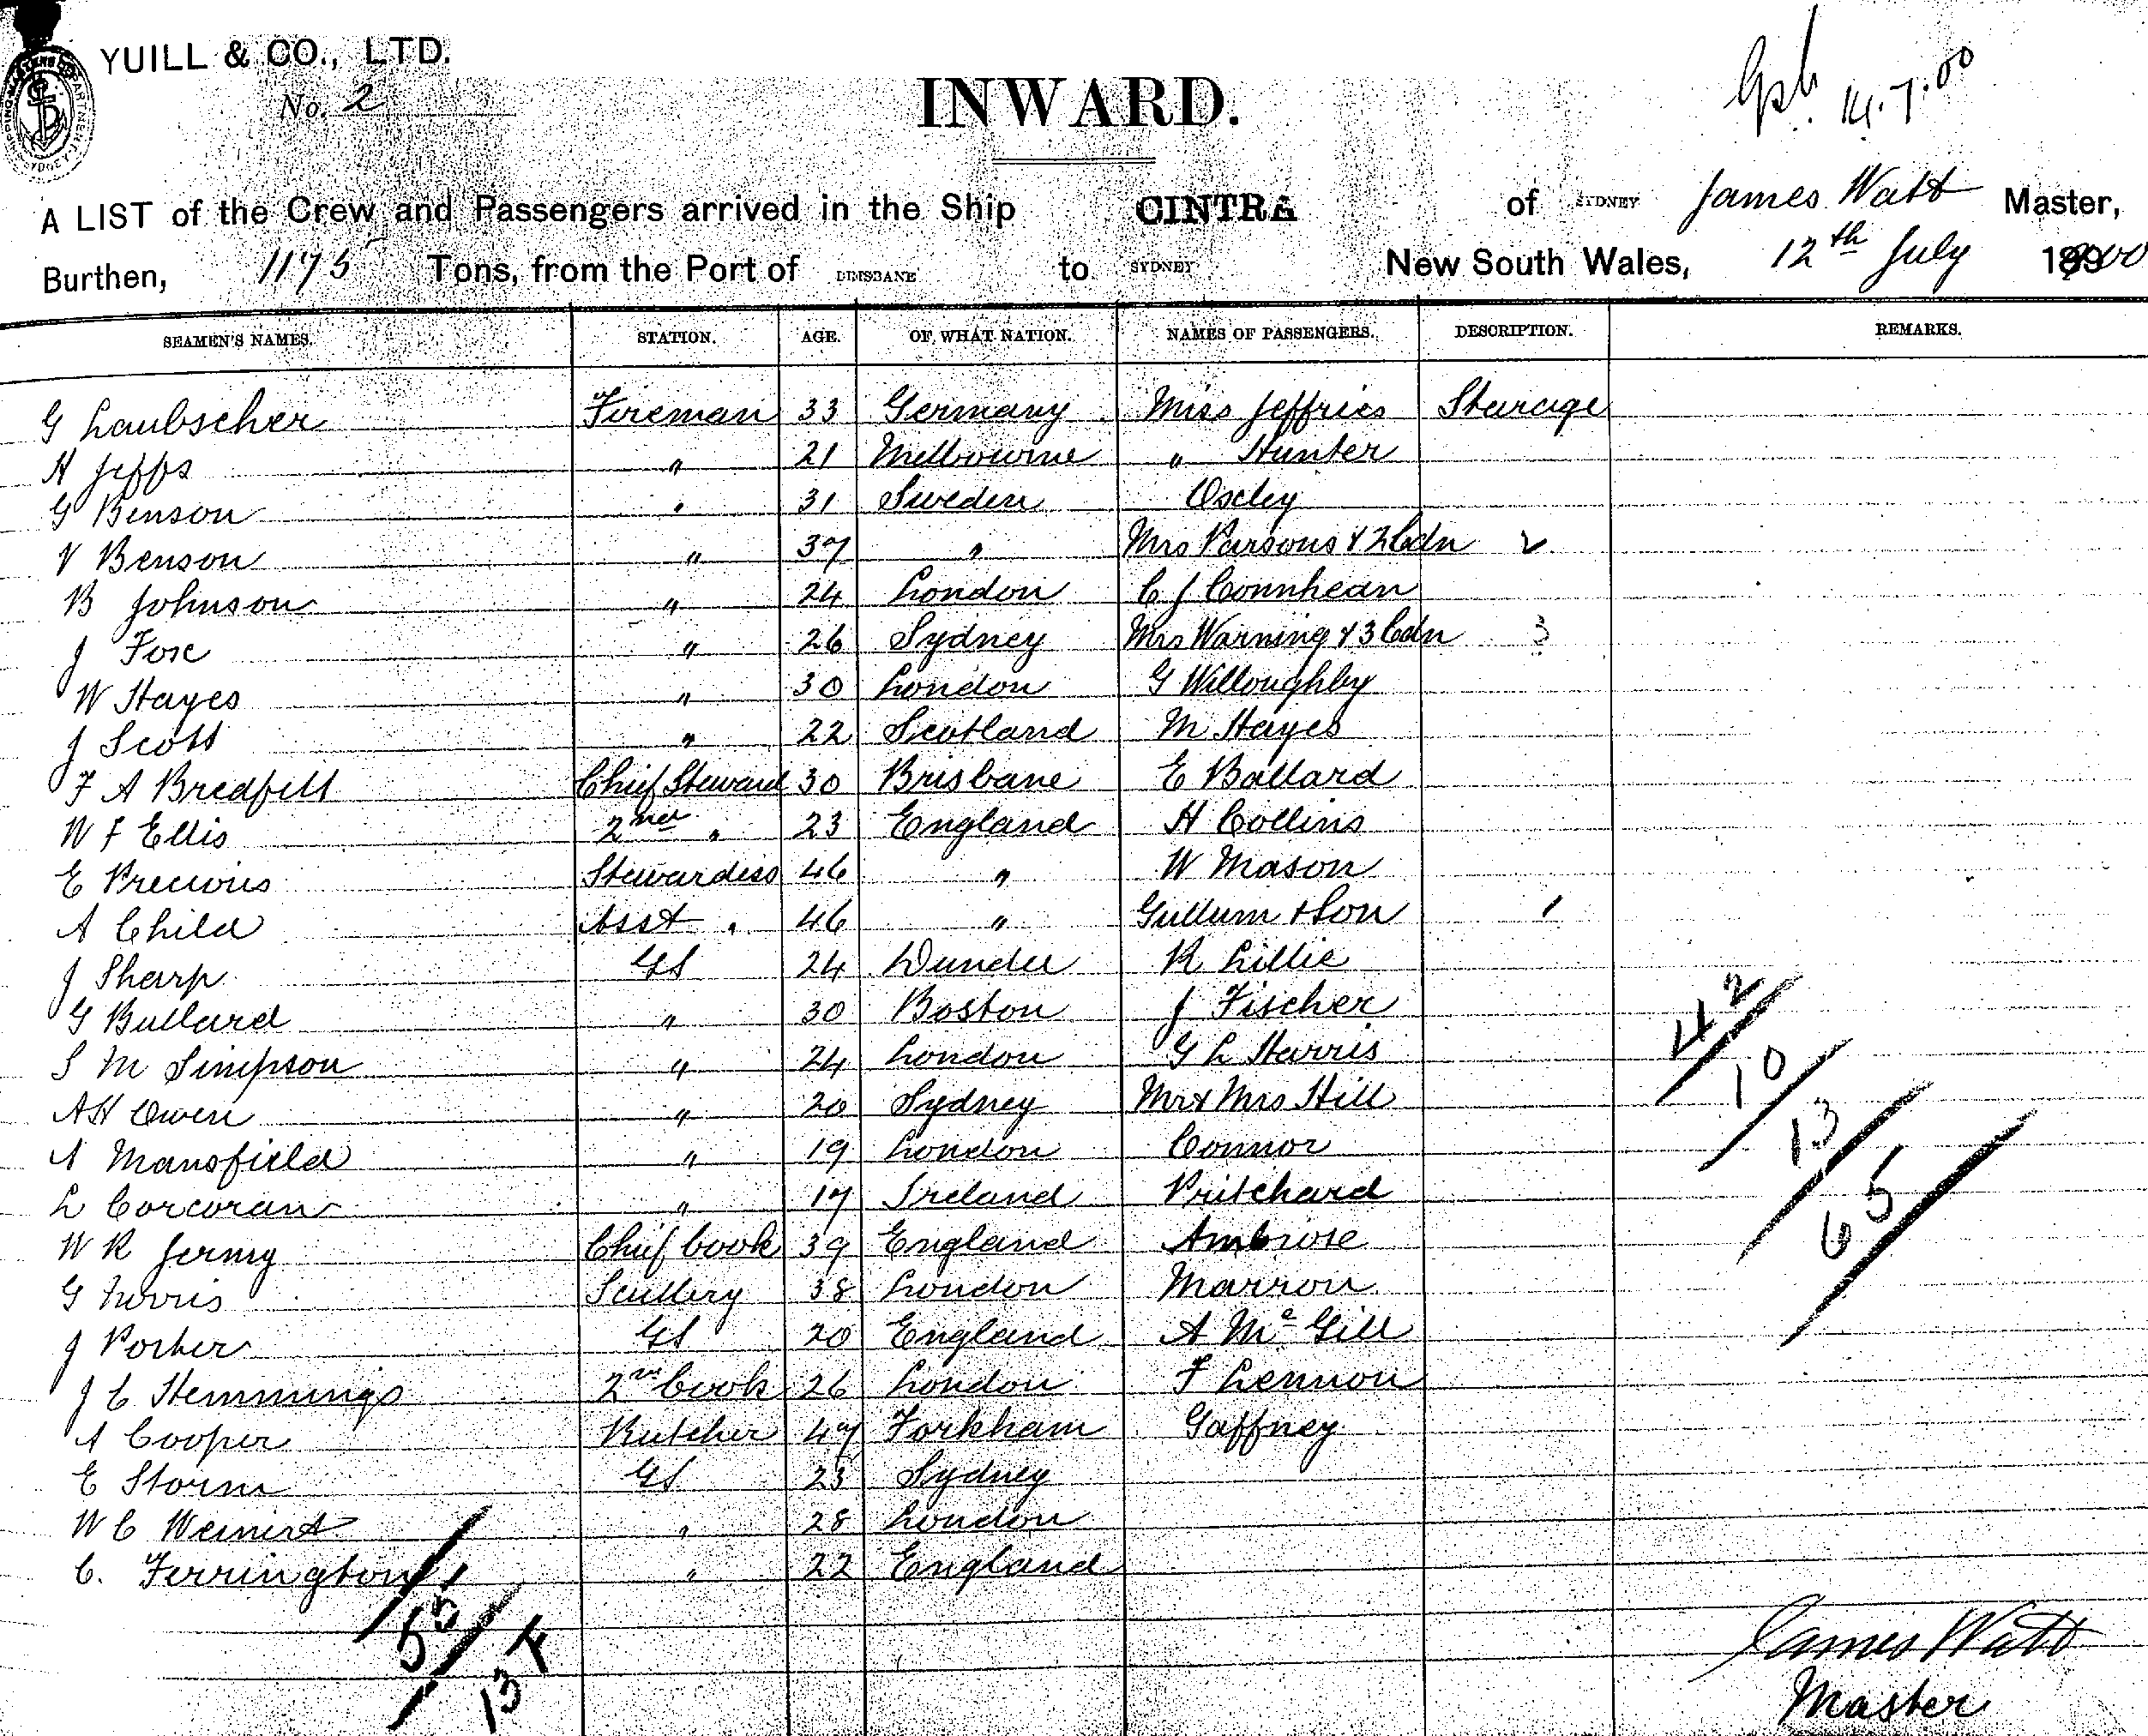 YUILL & CO., LTD.
No. 2
INWARD.
14.7.00
A LIST of the Crew and Passengers arrived in the Ship CINTRA of SYDNEY James Watt Master,
Burthen, 1175 Tons, from the Port of BRISBANE to SYDNEY New South Wales, 12th July 1900
SEAMEN'S NAMES. STATION. AGE. OF WHAT NATION. NAMES OF PASSENGERS. DESCRIPTION. REMARKS.
G Laubscher Fireman 33 Germany Miss Jeffries Sturage
H Jeffs " 21 Melbourne " Hunter
G Benson " 31 Sweden Oxley
V Benson " 37 " Mrs Parsons & 2 Cdn 2
B Johnson " 24 London C J Connhean
J Fox " 26 Sydney Mrs Warning & 3 Cdn 3
W Hayes " 30 London G Willoughby
J Scott " 22 Scotland M Hayes
F A Bredfelt Chief Steward 30 Brisbane E Ballard
W F Ellis 2nd " 23 England H Collins
E Precious Stewardess 46 " W Mason
A Child Asst " 46 " Gullum & Son 1
J Sharp GS 24 Dundee R Lillie
G Bullard " 30 Boston J Fischer
S M Simpson " 24 London G L Harris
A H Owen " 20 Sydney Mr & Mrs Hill
A Mansfield " 19 London Connor
L Corcoran " 17 Ireland Pritchard
W R Jermy Chief Cook 39 England Ambrose
G Norris Scullery 38 London Marron
J Porter GS 20 England A McGill
J C Hemmings 2nd Cook 26 London F Lennon
A Cooper Butcher 47 Forkham Gaffney
E Storm GS 23 Sydney
W C Weinert " 28 London
C. Ferrington " 22 England
42
10
13
65
55
13 F
James Watt
Master